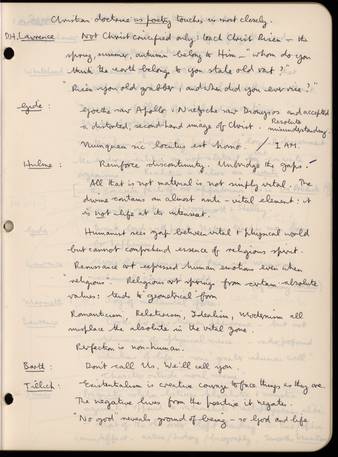 Christian doctrine as poetry touches us most closely.
D.H. Lawrence Not Christ crucified only: teach Christ Risen – the
spring, summer, autumn belong to Him – "whom do you
think the earth belongs to you stale old rat?"
"Risen you old grabber, and when did you ever rise?"
Gide: Goethe saw Apollo: Nietzsche saw Dionysos and accepted
a distorted, second-hand image of Christ. Resolute misunderstanding.
Nunquam sic locutus est homo. / I AM.
Hulme: Reinforce discontinuity. Unbridge the gaps.
All that is not material is not simply vital. The
divine contains an almost anti-vital element: it
is not life at its intensest.
Humanist sees gap between vital & physical world
but cannot comprehend essence of religious spirit.
Renaissance art expressed human emotions even when
"religious". Religious art springs from certain absolute
values: tends to geometrical form
Romanticism, Relativism, Idealism, Modernism all
misplace the absolute in the vital zone.
Perfection is non-human.
Barth: Don't call Us, We'll call you.
Tillich: Existentialism is creative courage to face things as they are.
The negative lives from the positive it negates.
"No god" reveals ground of being – so God and life